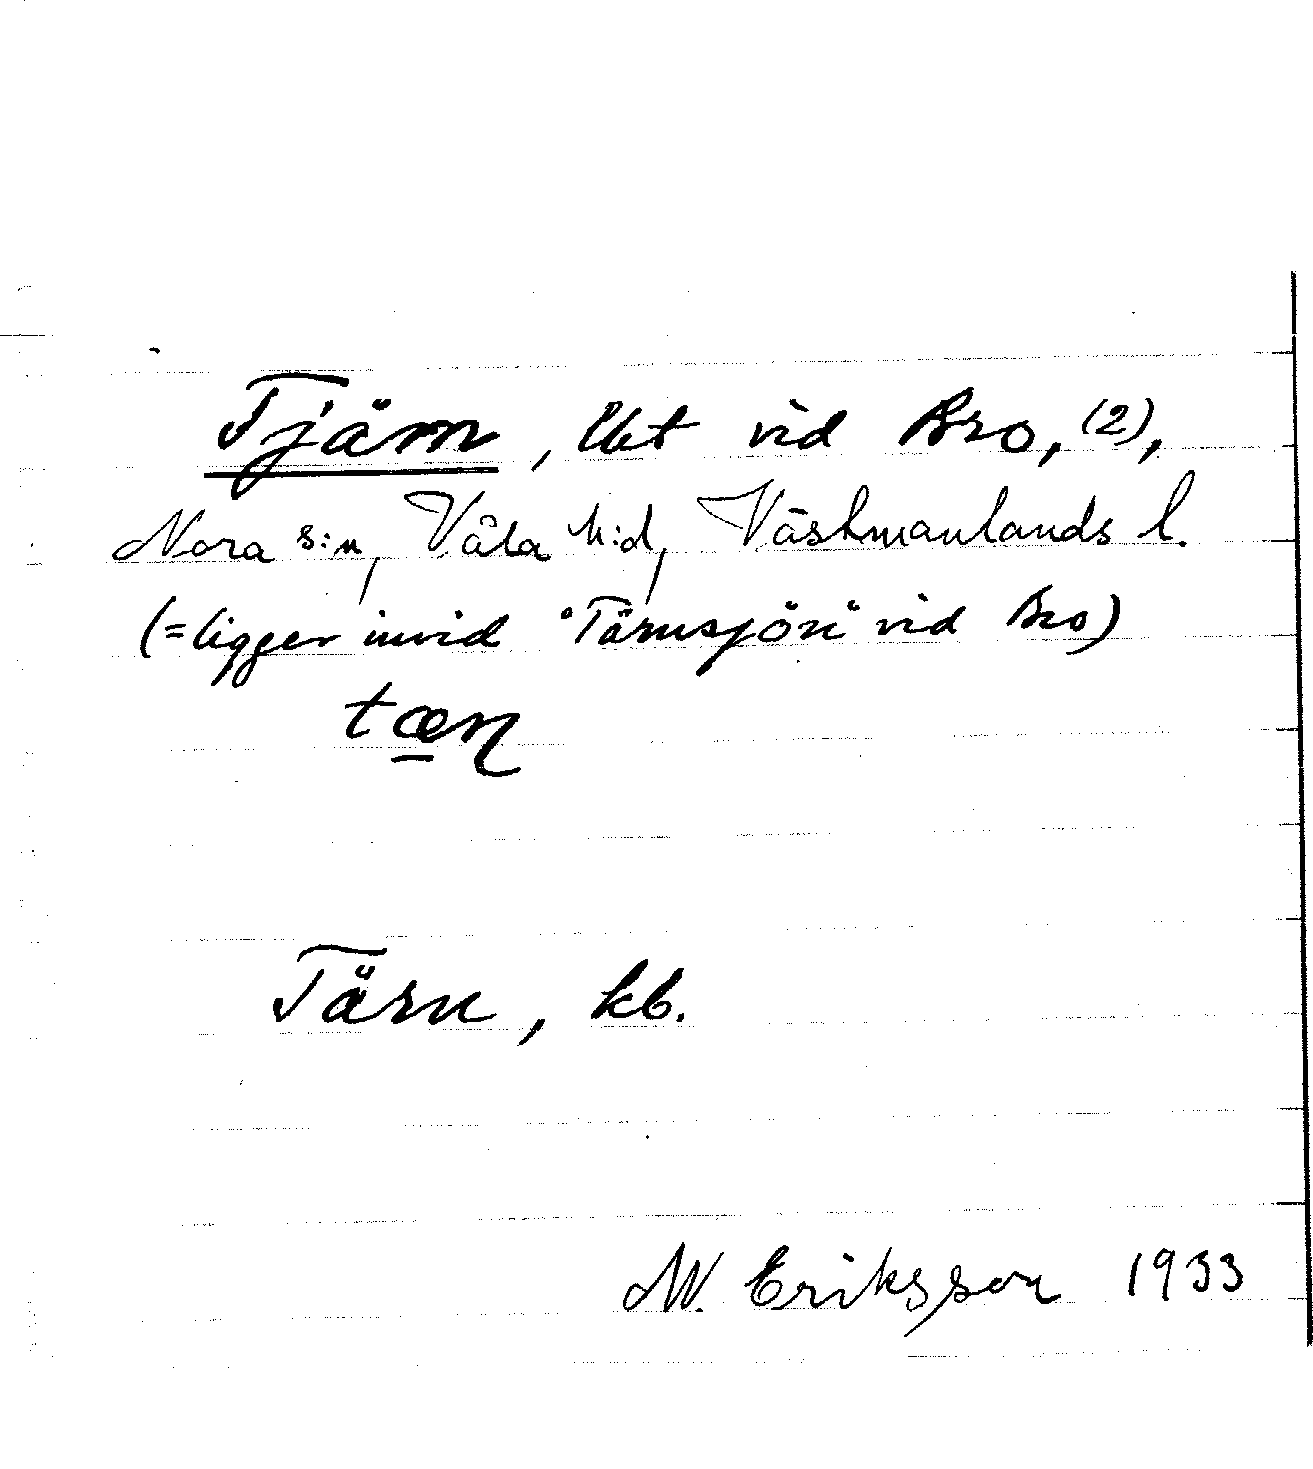 Tjärn, lht vid Bro, (2),
Nora s:n, Våla h:d, Västmanlands l.
(=ligger invid "Tärnsjön" vid Bro)
tæn
Tärn, kb.
M. Eriksson 1933